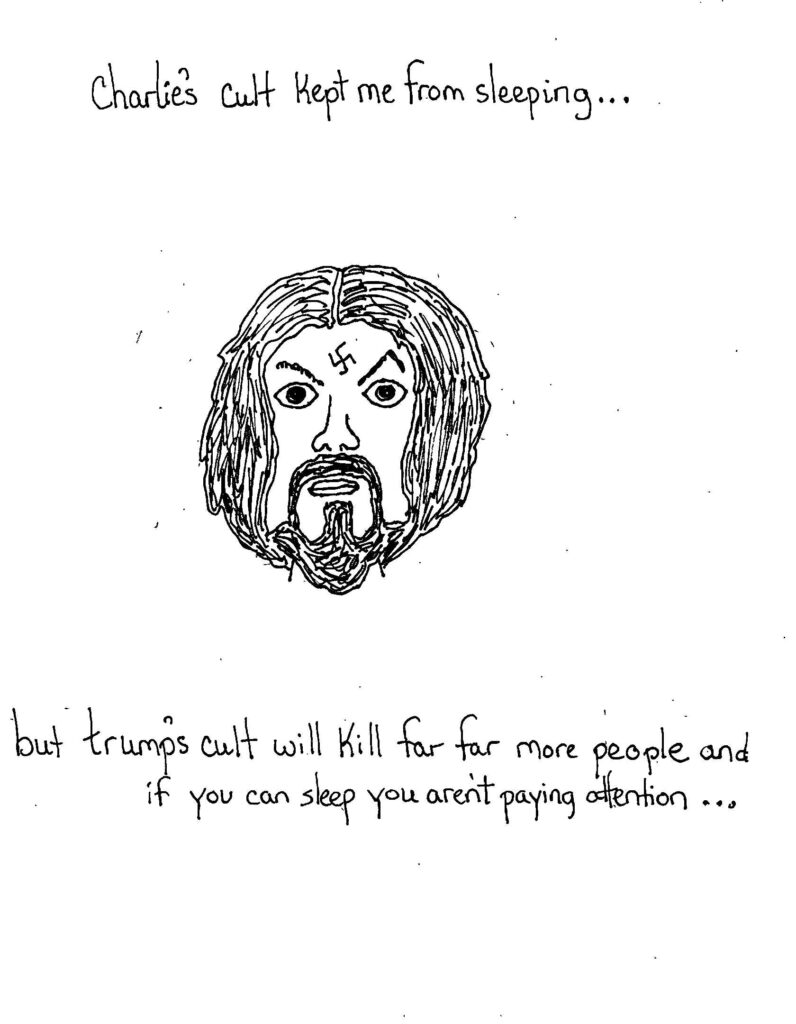 Charlie's cult kept me from sleeping...
but trump's cult will kill far far more people and
if you can sleep you aren't paying attention...